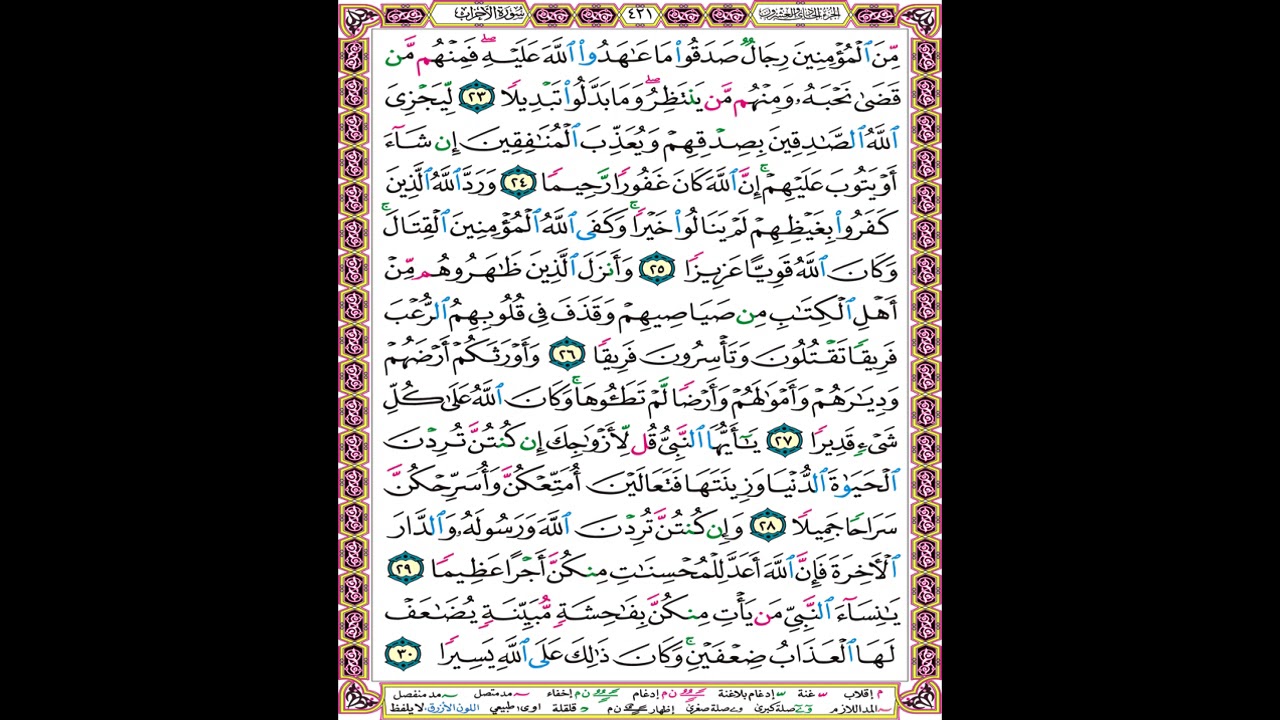 الجزء الحادي والعشرون ٤٢١ سورة الأحزاب
مِّنَ ٱلْمُؤْمِنِينَ رِجَالٌ صَدَقُوا۟ مَا عَٰهَدُوا۟ ٱللَّهَ عَلَيْهِ ۖ فَمِنْهُم مَّن
قَضَىٰ نَحْبَهُۥ وَمِنْهُم مَّن يَنتَظِرُ ۖ وَمَا بَدَّلُوا۟ تَبْدِيلًا ٢٣ لِّيَجْزِىَ
ٱللَّهُ ٱلصَّٰدِقِينَ بِصِدْقِهِمْ وَيُعَذِّبَ ٱلْمُنَٰفِقِينَ إِن شَآءَ
أَوْ يَتُوبَ عَلَيْهِمْ ۚ إِنَّ ٱللَّهَ كَانَ غَفُورًا رَّحِيمًا ٢٤ وَرَدَّ ٱللَّهُ ٱلَّذِينَ
كَفَرُوا۟ بِغَيْظِهِمْ لَمْ يَنَالُوا۟ خَيْرًا ۚ وَكَفَى ٱللَّهُ ٱلْمُؤْمِنِينَ ٱلْقِتَالَ ۚ
وَكَانَ ٱللَّهُ قَوِيًّا عَزِيزًا ٢٥ وَأَنزَلَ ٱلَّذِينَ ظَٰهَرُوهُم مِّنْ
أَهْلِ ٱلْكِتَٰبِ مِن صَيَاصِيهِمْ وَقَذَفَ فِى قُلُوبِهِمُ ٱلرُّعْبَ
فَرِيقًا تَقْتُلُونَ وَتَأْسِرُونَ فَرِيقًا ٢٦ وَأَوْرَثَكُمْ أَرْضَهُمْ
وَدِيَٰرَهُمْ وَأَمْوَٰلَهُمْ وَأَرْضًا لَّمْ تَطَـُٔوهَا ۚ وَكَانَ ٱللَّهُ عَلَىٰ كُلِّ
شَىْءٍ قَدِيرًا ٢٧ يَٰٓأَيُّهَا ٱلنَّبِىُّ قُل لِّأَزْوَٰجِكَ إِن كُنتُنَّ تُرِدْنَ
ٱلْحَيَوٰةَ ٱلدُّنْيَا وَزِينَتَهَا فَتَعَالَيْنَ أُمَتِّعْكُنَّ وَأُسَرِّحْكُنَّ
سَرَاحًا جَمِيلًا ٢٨ وَإِن كُنتُنَّ تُرِدْنَ ٱللَّهَ وَرَسُولَهُۥ وَٱلدَّارَ
ٱلْءَاخِرَةَ فَإِنَّ ٱللَّهَ أَعَدَّ لِلْمُحْسِنَٰتِ مِنكُنَّ أَجْرًا عَظِيمًا ٢٩
يَٰنِسَآءَ ٱلنَّبِىِّ مَن يَأْتِ مِنكُنَّ بِفَٰحِشَةٍ مُّبَيِّنَةٍ يُضَٰعَفْ
لَهَا ٱلْعَذَابُ ضِعْفَيْنِ ۚ وَكَانَ ذَٰلِكَ عَلَى ٱللَّهِ يَسِيرًا ٣٠
م إقلاب غنة إدغام بلاغنة ن م إدغام ن م إخفاء مد متصل مد منفصل
المد اللازم صلة كبرى صلة صغرى إظهار ن م قلقلة اوى: طبيعي اللون الأزرق لا يلفظ